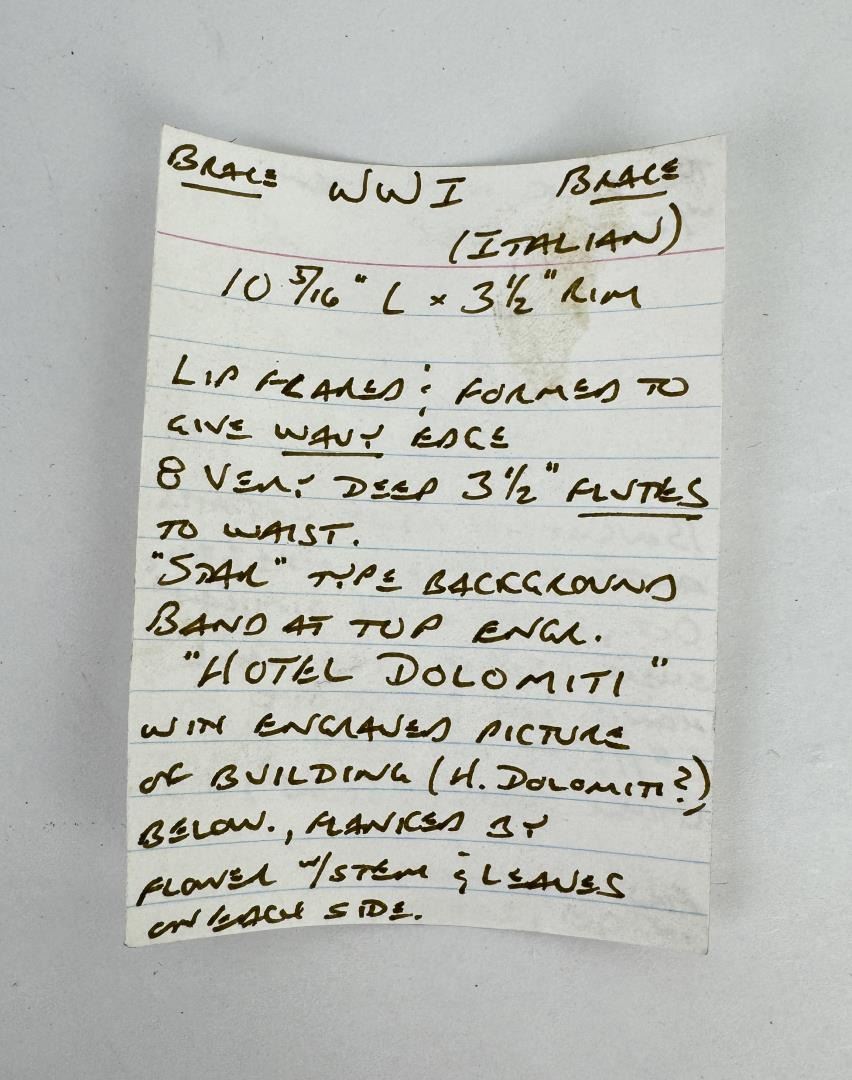 BRACE WWI BRACE
(ITALIAN)
10 5/16" L x 3 1/2" RIM
LIP FLARED & FORMED TO
GIVE WAVY EDGE
8 VERY DEEP 3 1/2" FLUTES
TO WAIST.
"STAR" TYPE BACKGROUND
BAND AT TOP ENGR.
"HOTEL DOLOMITI"
WITH ENGRAVED PICTURE
OF BUILDING (H. DOLOMITI?)
BELOW., FLANKED BY
FLOWER W/STEM & LEAVES
ON EACH SIDE.